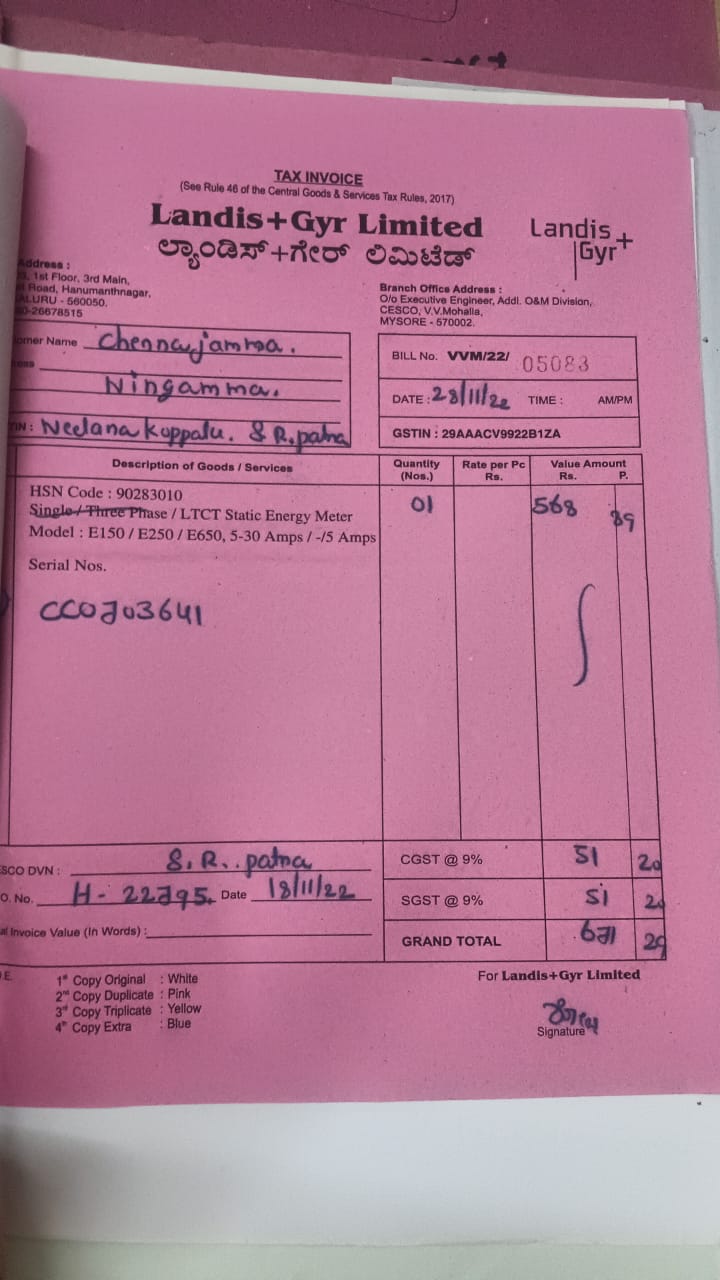 TAX INVOICE
(See Rule 46 of the Central Goods & Services Tax Rules, 2017)
Landis+Gyr Limited
ಲ್ಯಾಂಡಿಸ್+ಗೇರ್ ಲಿಮಿಟೆಡ್
Landis
Gyr+
Address :
1st Floor, 3rd Main,
Road, Hanumanthnagar,
ALURU - 560050.
-26678515
Branch Office Address :
O/o Executive Engineer, Addl. O&M Division,
CESCO, V.V.Mohalla,
MYSORE - 570002.
omer Name Chennajamma.
ess
Ningamma.
IN : Neelana Koppalu. S R. patna
BILL No. VVM/22/ 05083
DATE : 28/11/22 TIME : AM/PM
GSTIN : 29AAACV9922B1ZA
Description of Goods / Services Quantity (Nos.) Rate per Pc Rs. Value Amount Rs. P.
HSN Code : 90283010 01 568 89
Single / Three Phase / LTCT Static Energy Meter
Model : E150 / E250 / E650, 5-30 Amps / -/5 Amps
Serial Nos.
CC0703641
SCO DVN : S. R. patna
CGST @ 9% 51 20
O. No. H- 22795. Date 18/11/22
SGST @ 9% 51 20
al Invoice Value (In Words) :
GRAND TOTAL 671 29
.E.
1st Copy Original : White
2nd Copy Duplicate : Pink
3rd Copy Triplicate : Yellow
4th Copy Extra : Blue
For Landis+Gyr Limited
Signature